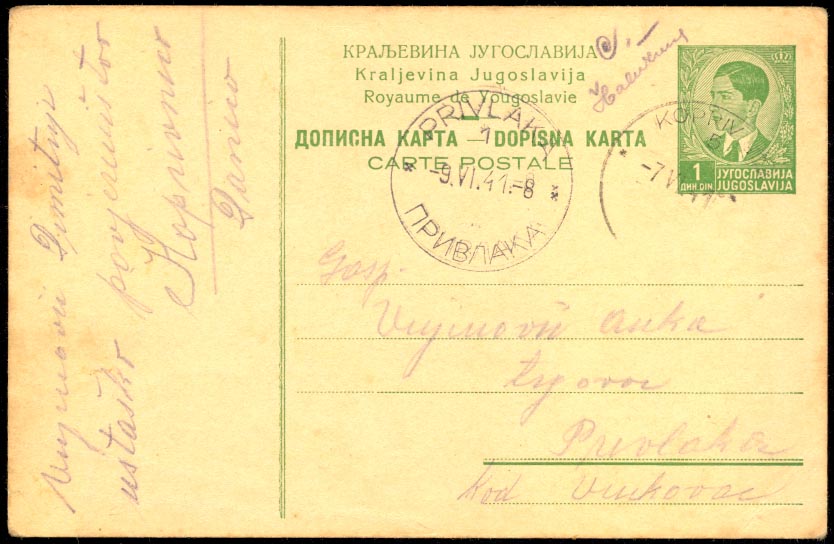 КРАЉЕВИНА ЈУГОСЛАВИЈА
Kraljevina Jugoslavija
Royaume de Yougoslavie
ДОПИСНА КАРТА — DOPISNA KARTA
CARTE POSTALE
PRIVLAKA
1
* -9.VI.41.-8 *
ПРИВЛАКА
KOPRIV
-7.VI.41
1
ДИН. DIN.
ЈУГОСЛАВИЈА
JUGOSLAVIJA
Gosp.
Vujnović Anka
trgovac
Privlaka
kod Vinkovac
Vujnović Dimitrije
ustaško povjereništvo
Koprivnica
Danica